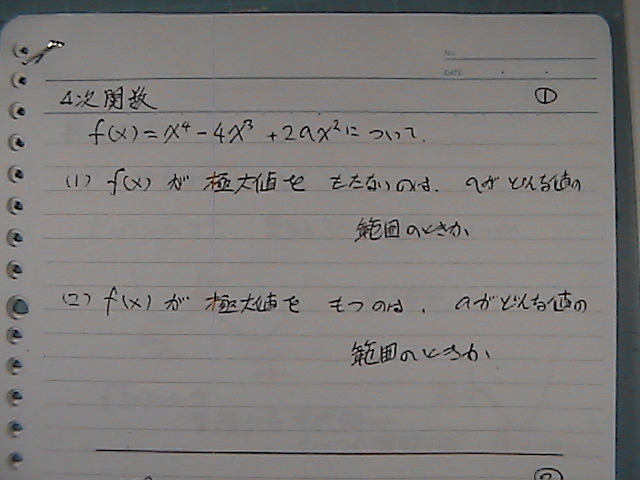 No.
DATE
4次関数
①
f(x)=x⁴-4x³+2ax²について.
(1) f(x) が 極大値を もたないのは、aがどんな値の
範囲のときか
(2) f(x) が 極大値を もつのは、aがどんな値の
範囲のときか
②